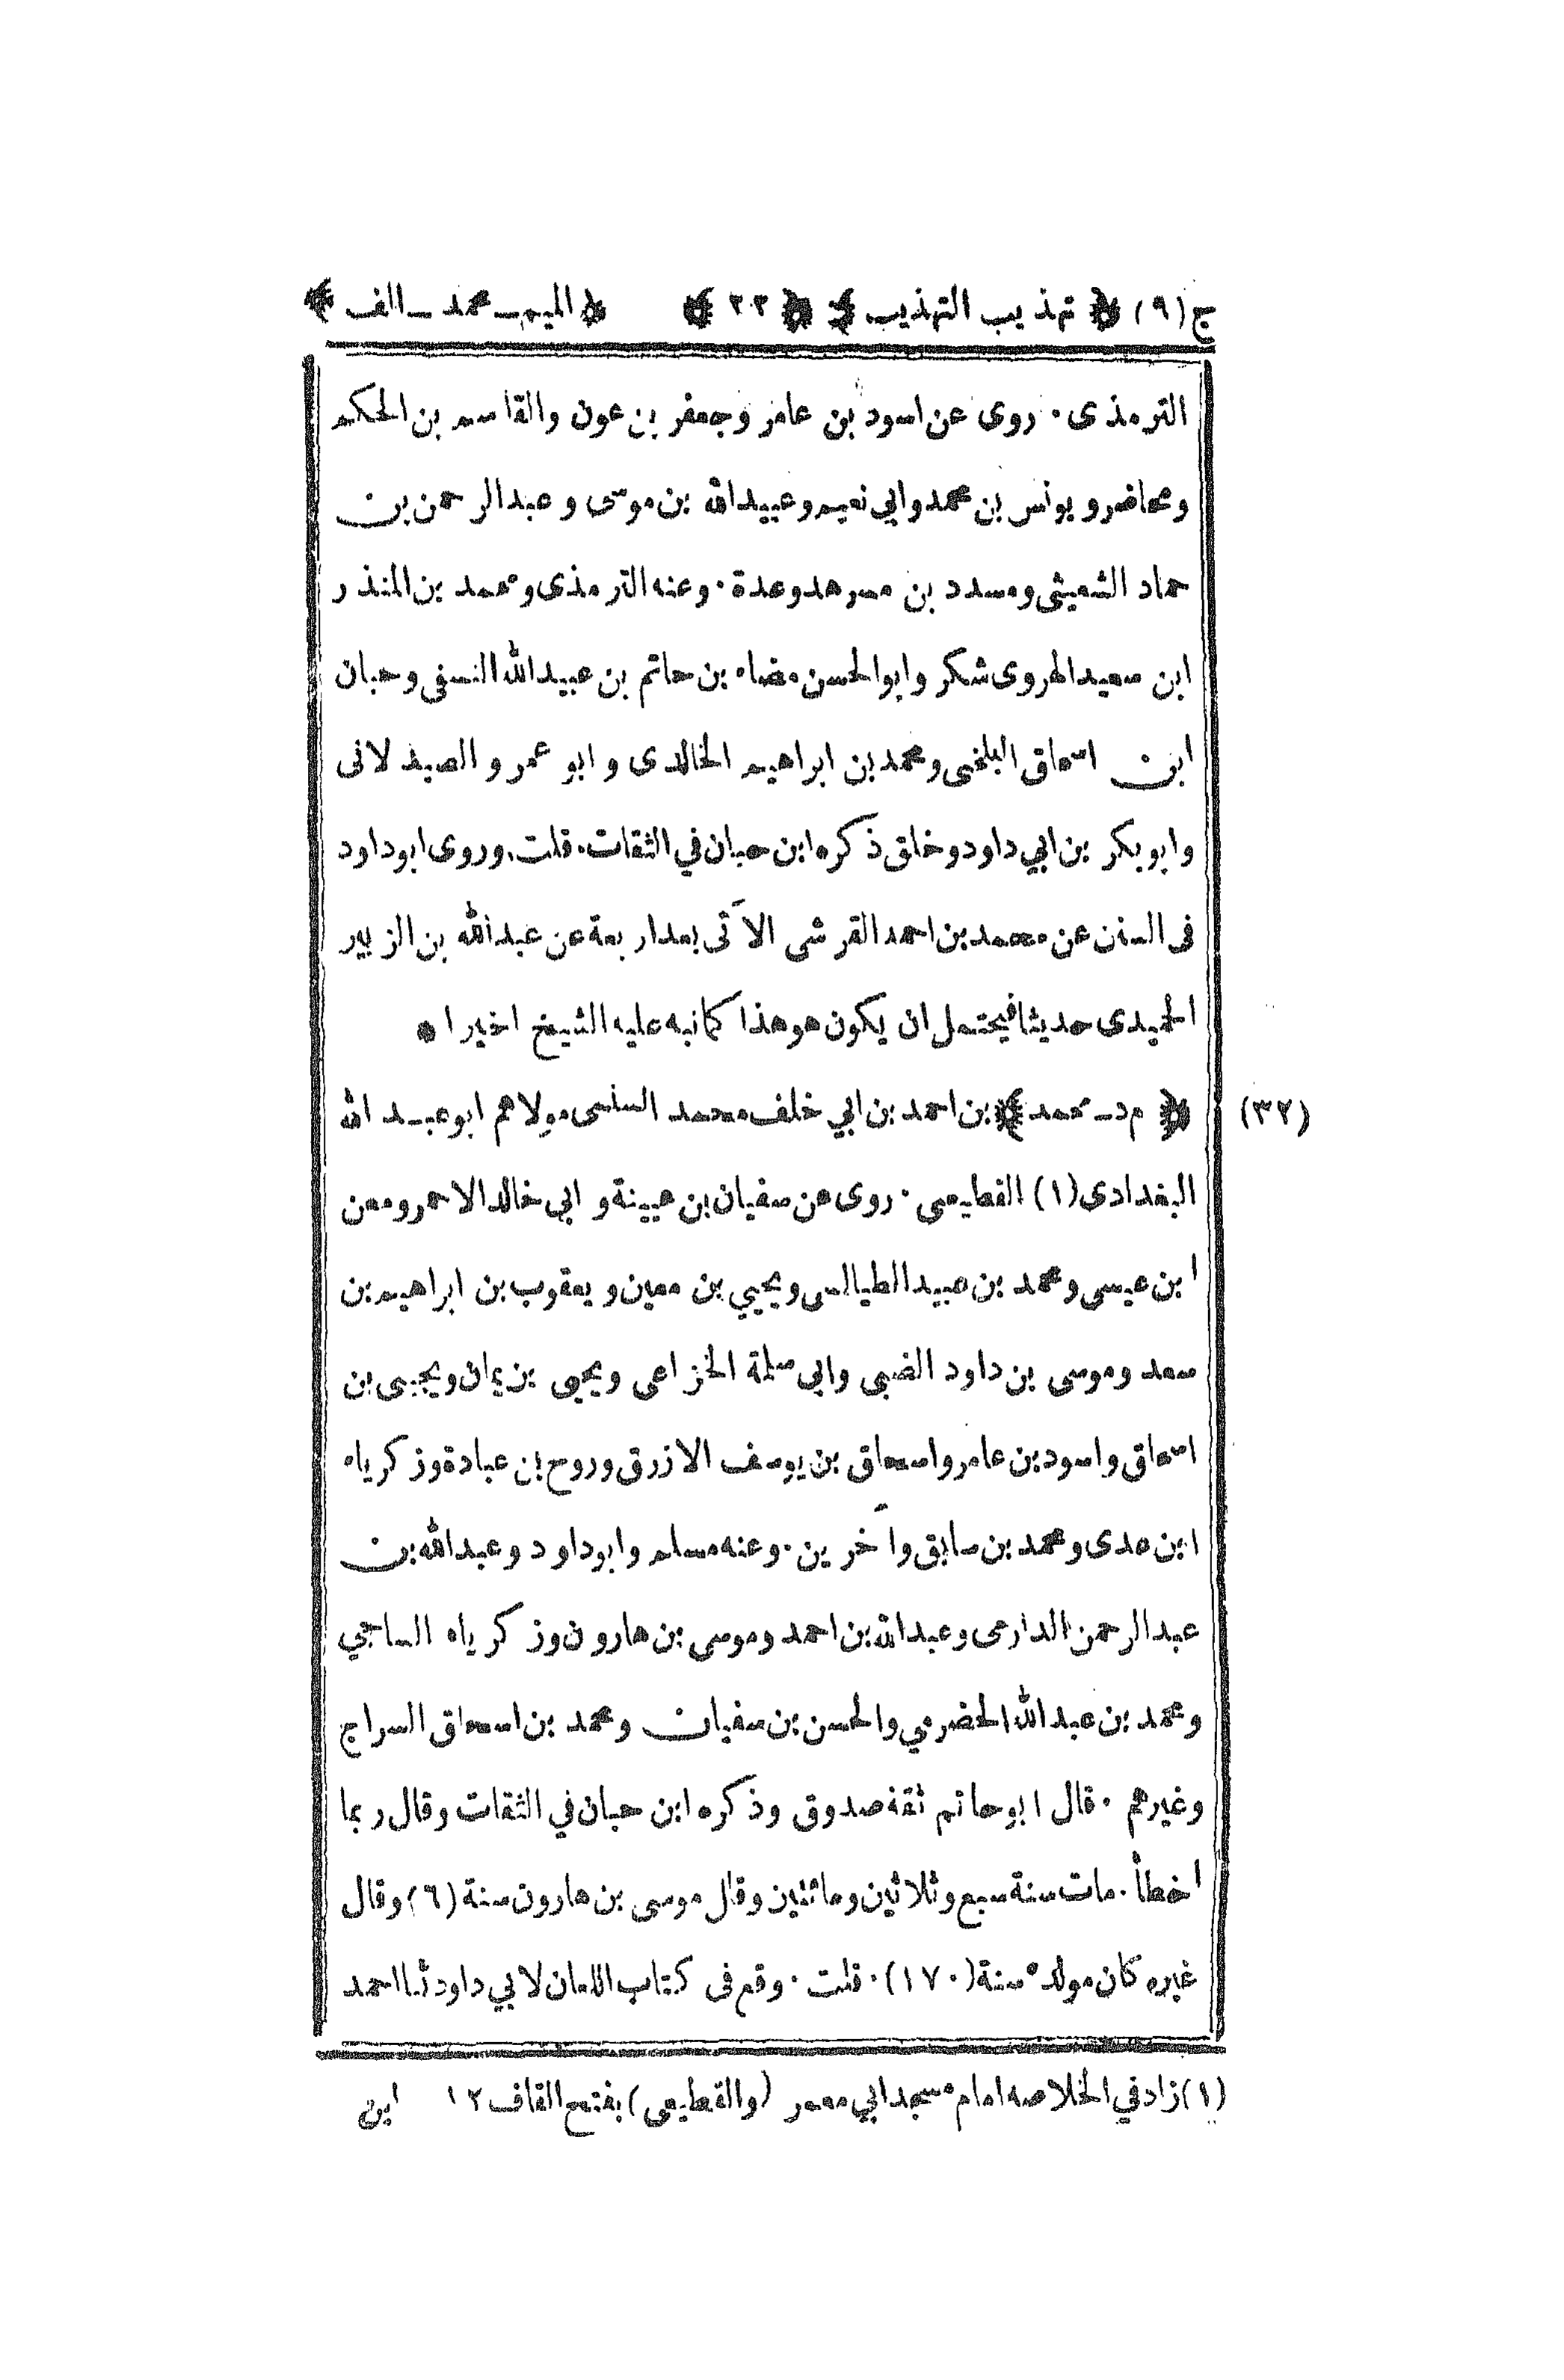 ج (٩) ﴿ تهذيب التهذيب ﴾ ﴿ ٢٢ ﴾ ﴿ الميم ــ محمد ــ الف ﴾
الترمذى ٠ روى عن اسود بن عامر وجعفر بن عون والقاسم بن الحكم
ومحاضرو يونس بن محمد وابي نعيم وعبيدالله بن موسى وعبد الرحمن بن
حماد الشعيثى ومسدد بن مسرهد وعدة ٠ وعنه الترمذى ومحمد بن المنذر
ابن سعيد الهروى شكر وابوالحسن مضاه بن حاتم بن عبيدالله النسفى وحبان
ابن اسحاق البلخى ومحمد بن ابراهيم الخالدى وابو عمرو الصيدلانى
وابو بكر بن ابي داود وخلق ذكره ابن حبان في الثقات ٠ قلت ٠ وروى ابو داود
فى السنن عن محمد بن احمد القرشى الآتى بعد اربعة عن عبدالله بن الزبير
الحميدى حديثا فيحتمل ان يكون هو هذا كما نبه عليه الشيخ اخيرا ٠
(٣٢) ﴿ م د ــ محمد ﴾ بن احمد بن ابي خلف محمد السلمى مولاهم ابو عبد الله
البغدادى (١) القطيعى ٠ روى عن سفيان بن عيينة و ابي خالد الاحمر ومعن
ابن عيسى ومحمد بن عبيد الطيالسى ويحيي بن معين ويعقوب بن ابراهيم بن
سعد وموسى بن داود الضبى وابى سلمة الخزاعى ويحيى بن يمان ويحيى بن
اسحاق واسود بن عامر واسحاق بن يوسف الازرق وروح بن عبادة وزكرياه
ابن عدى ومحمد بن سابق وآخرين ٠ وعنه مسلم وابو داود وعبدالله بن
عبد الرحمن الدارمى وعبدالله بن احمد وموسى بن هارون وزكرياه الساجي
ومحمد بن عبدالله الحضرمي والحسن بن سفيان ومحمد بن اسحاق السراج
وغيرهم ٠ قال ابو حاتم ثقة صدوق وذكره ابن حبان في الثقات وقال ربما
اخطأ ٠ مات سنة سبع وثلاثين ومائتين وقال موسى بن هارون سنة (٦) وقال
غيره كان مولده سنة (١٧٠) ٠ قلت ٠ وقع فى كتاب اللعان لابي داود ثنا احمد
(١) زاد في الخلاصه امام مسجد ابي معمر (والقطيعى) بفتح القاف ١٢ ابن